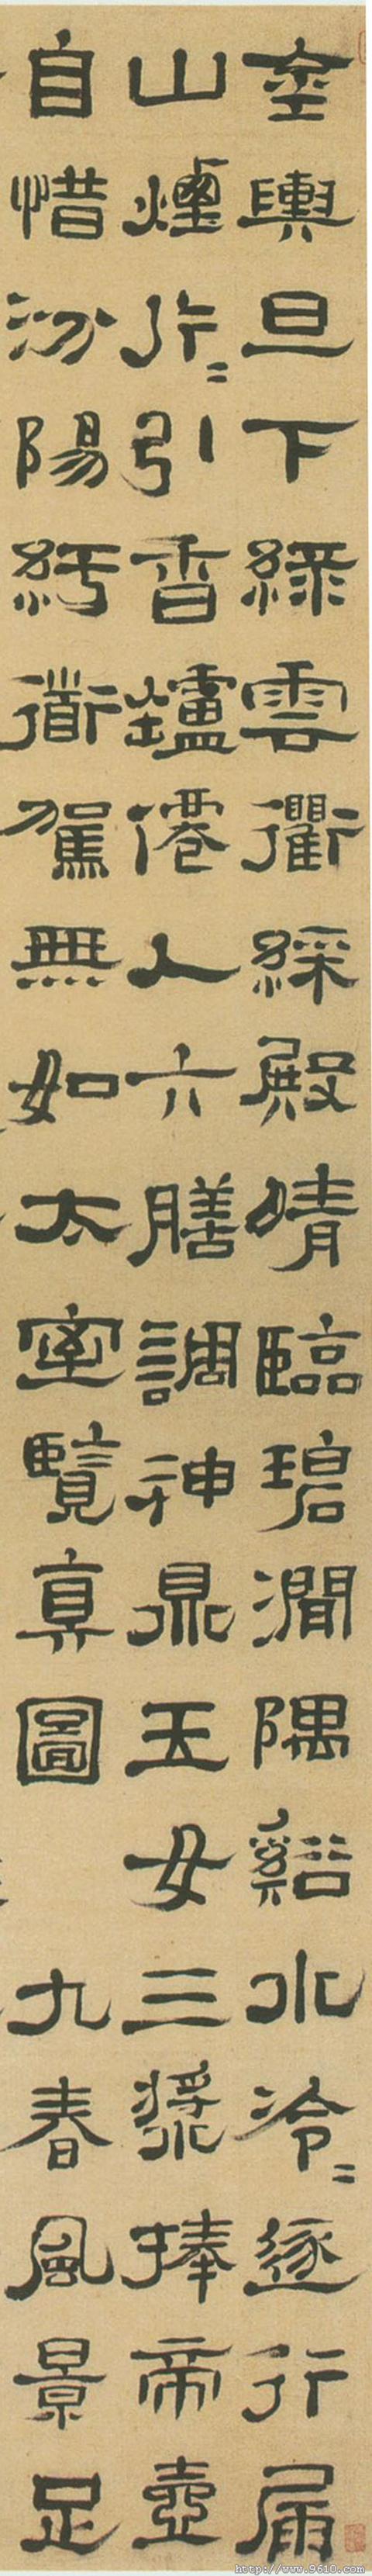 金輿旦下綠雲衢綵殿晴臨碧澗隅谿水泠〻逐行屚
山煙片〻引香鑪僊人六膳調神鼎玉女三漿捧帝壺
自惜汾陽紆道駕無如太室覽真圖 九春風景足
http://www.9610.com